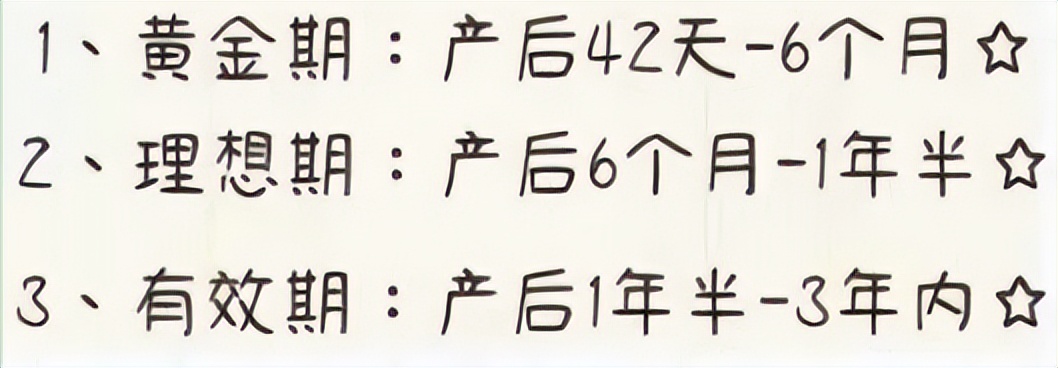 1、黄金期：产后42天-6个月☆
2、理想期：产后6个月-1年半☆
3、有效期：产后1年半-3年内☆